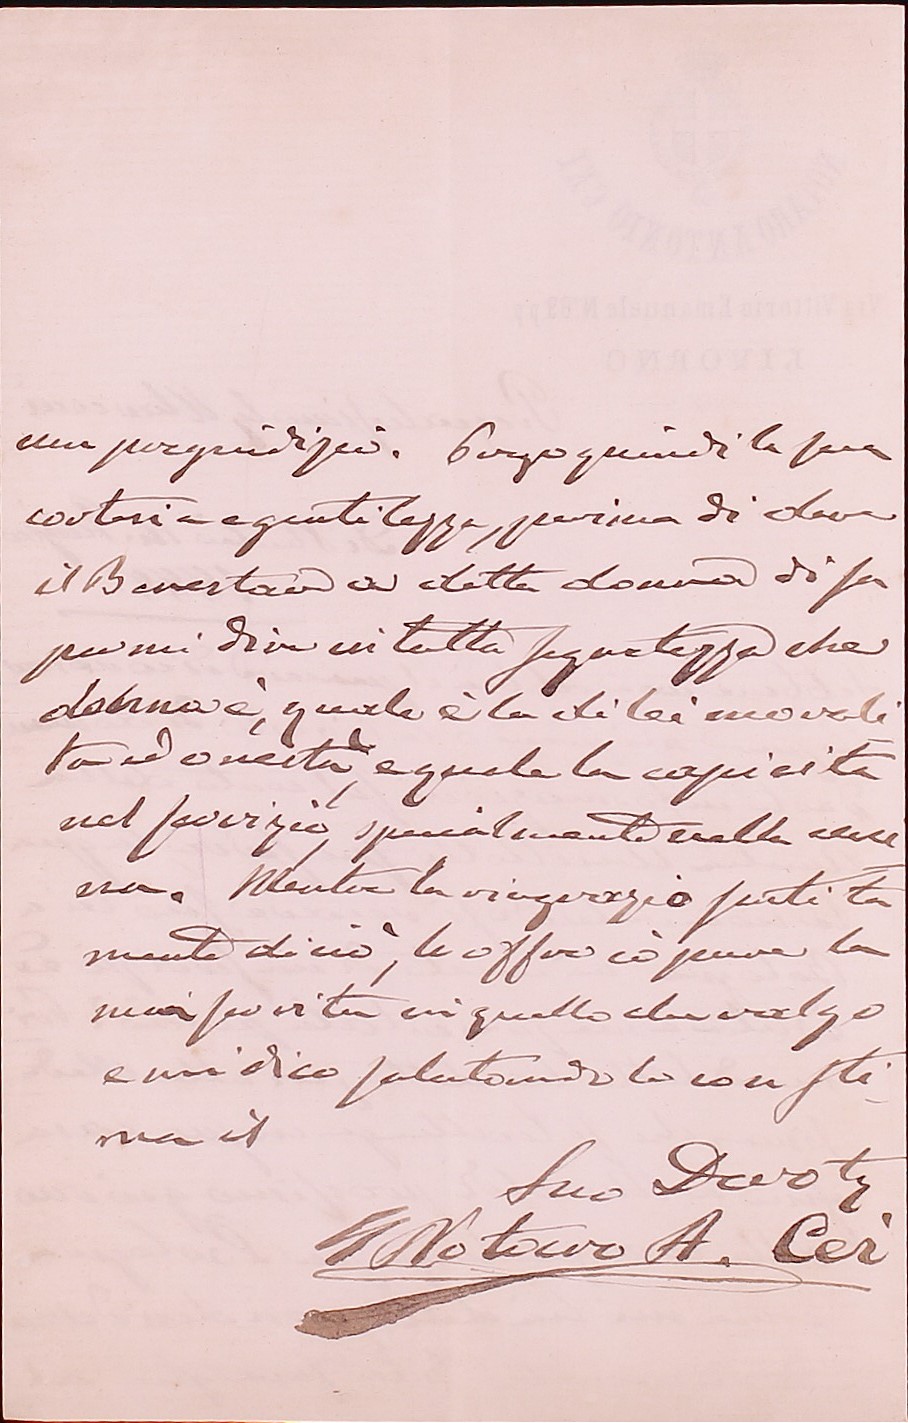 un pregiudizio. Porgo quindi la sua
cortesia e gentilezza, prima di dare
il Benestare a detta donna di sa
permi dire in tutta segretezza che
donna è, quale è la di lei morali
tà ed onestà, e quale la capacità
nel servizio, specialmente nella cuci
na. Mentre la ringrazio sentita
mente di ciò, le offro io pure la
mia servitù in quello che valgo
e mi dico salutandola con sti-
ma il
Suo Devotº
Notaro A. Cei
NOTARO ANTONIO CEI
Via Vittorio Emanuele N. 62 pº pº
LIVORNO